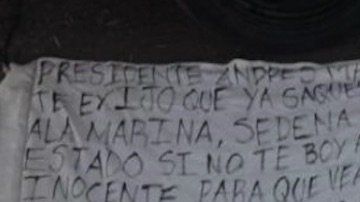 PRESIDENTE ANDRES MA
TE EXIJO QUE YA SAQUE
ALA MARINA, SEDENA
ESTADO SI NO TE BOY A
INOCENTE PARA QUE VEA